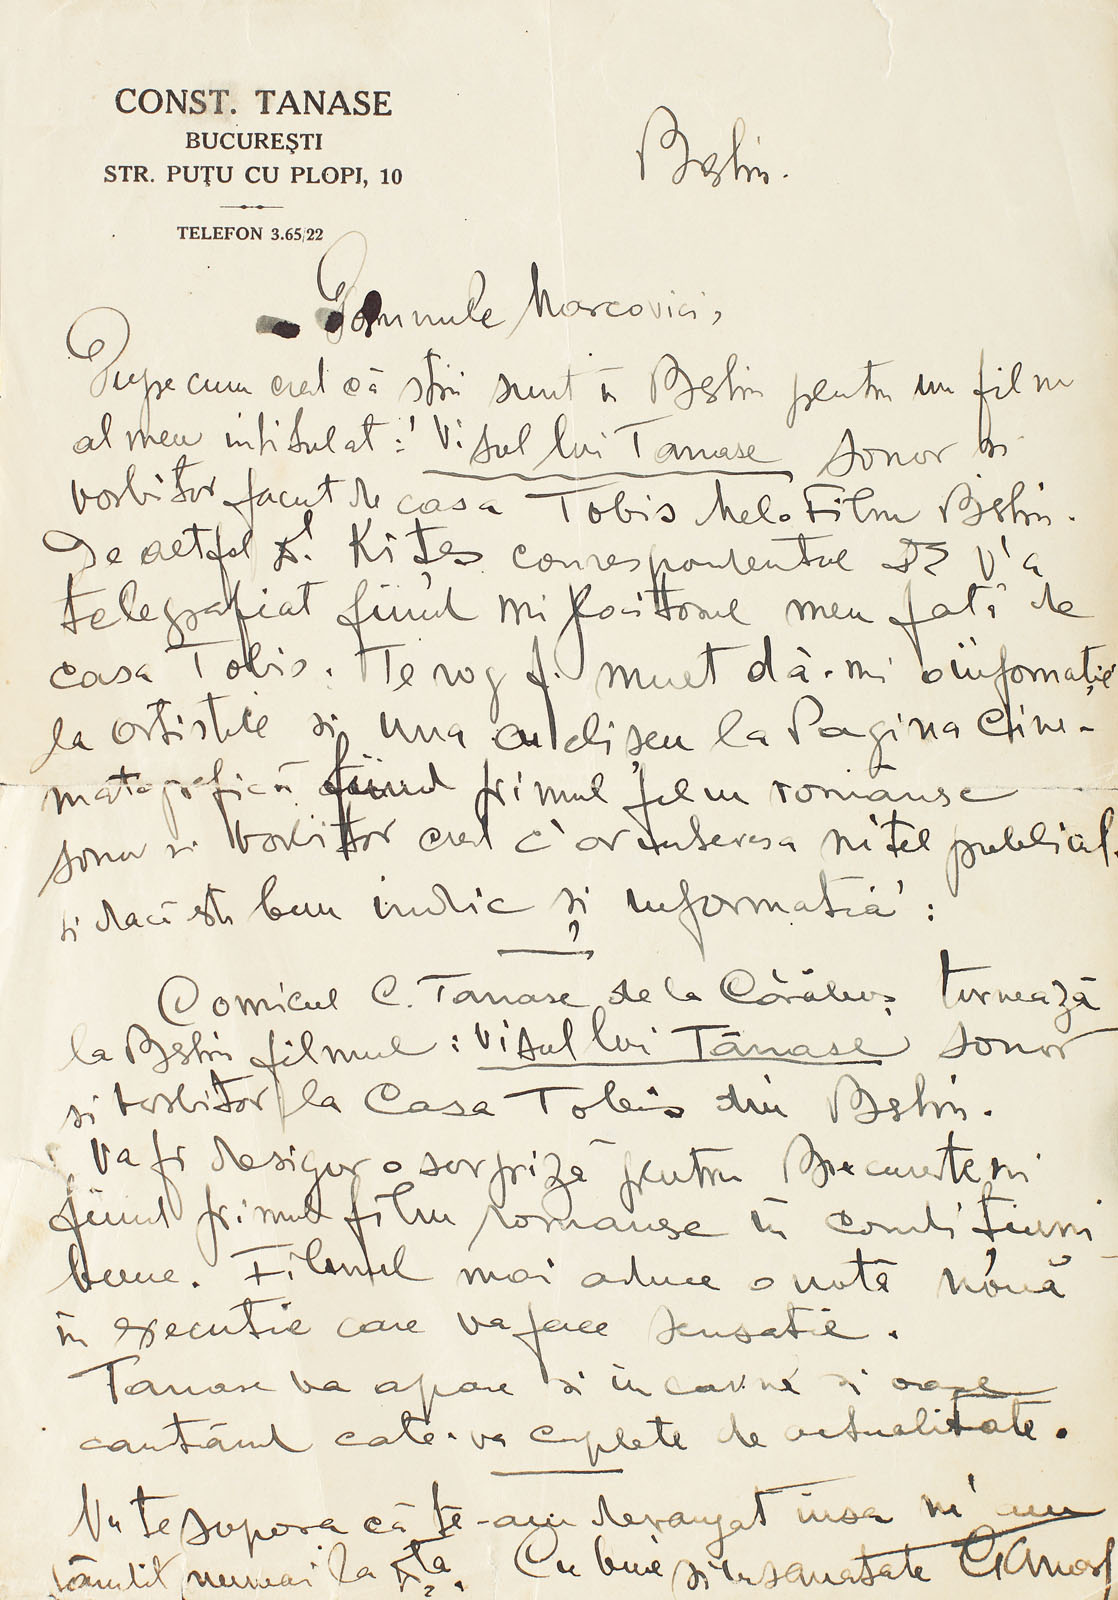 CONST. TANASE
BUCUREȘTI
STR. PUȚU CU PLOPI, 10
TELEFON 3.65/22
Berlin.
Domnule Marcovici,
Dupe cum cred că știi sunt în Berlin pentru un film
al meu intitulat: Visul lui Tanase sonor si
vorbitor facut de casa Tobis Melofilm Berlin.
De astfel correspondentul v'a
telegrafiat fiind mijlocitorul meu fată de
casa Tobis. Te rog f. mult dă-mi o informație
la artistice si una la Pagina Cine-
matografică fiind primul film românesc
sonor si vorbitor cred c'ar interesa nițel publicul.
si dacă ești bun indic și informatia:
Comicul C. Tanase de la Cărăbuș turnează
la Berlin filmul: Visul lui Tănase sonor
si vorbitor la Casa Tobis din Berlin.
Va fi desigur o surpriză pentru Bucuresteni
fiind primul film romanesc în condițiuni
bune. Filmul mai aduce o notă nouă
în executie care va face sensatie.
Tanase va apare si în carne si oase
cantând cate-va cuplete de actualitate.
Nu te supora că te-am deranjat insa n'am
numai la Cu bine si in sanatate CTanase